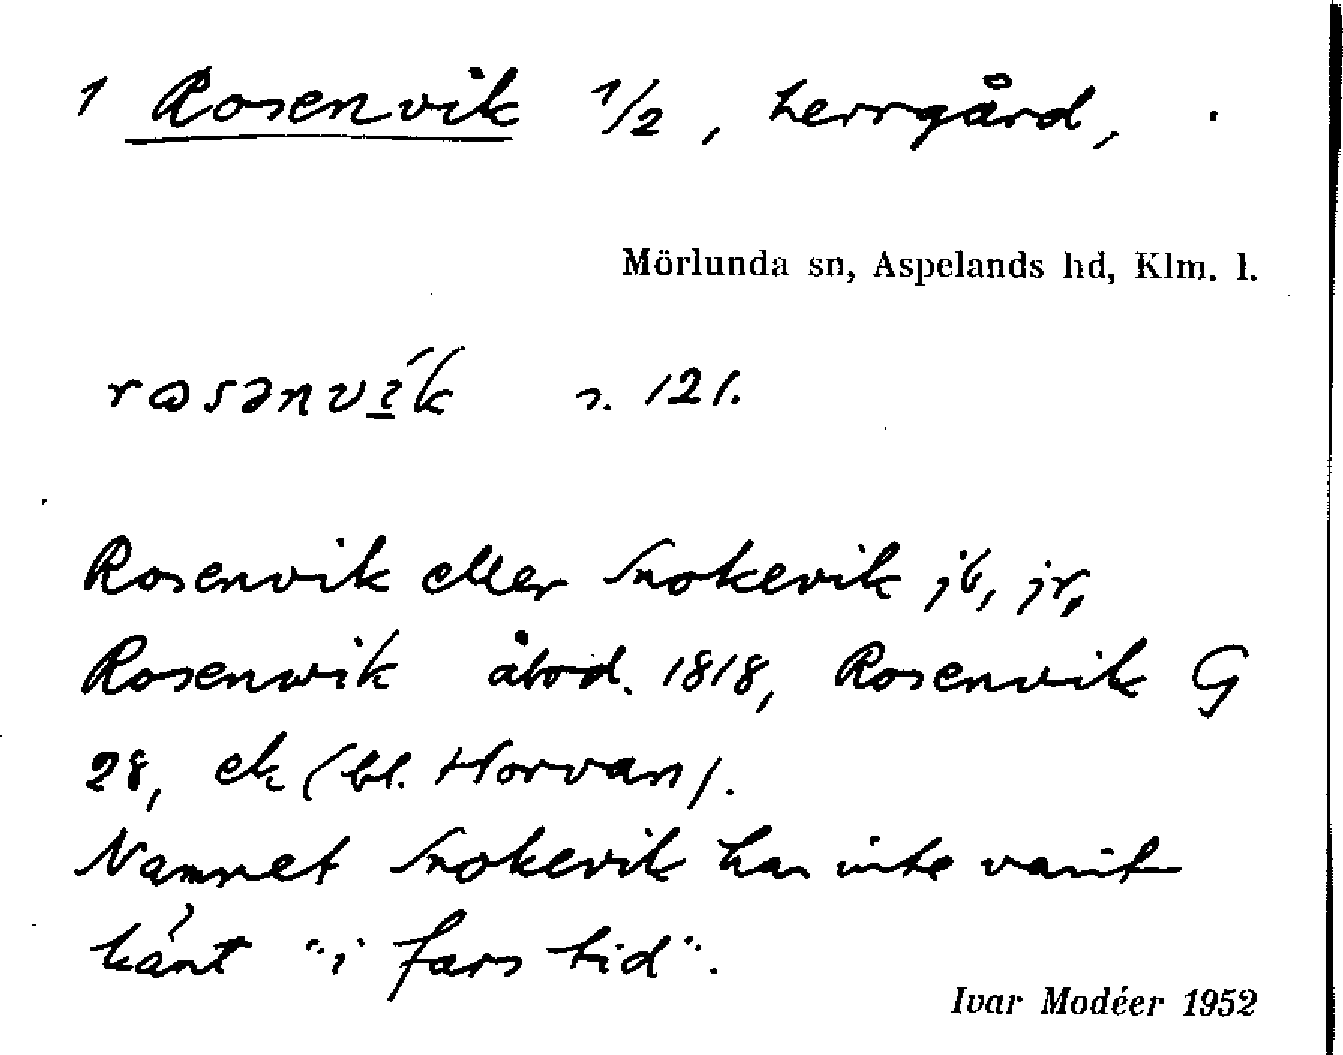 1 Rosenvik 1/2, herrgård,
Mörlunda sn, Aspelands hd, Klm. l.
rɷsənvı̱́k s. 121.
Rosenvik eller Snokevik jb, jr,
Rosenwik åbod. 1818, Rosenvik G
28, ek (bl. Horvan).
Namnet Snokevik har inte varit
känt "i fars tid".
Ivar Modéer 1952